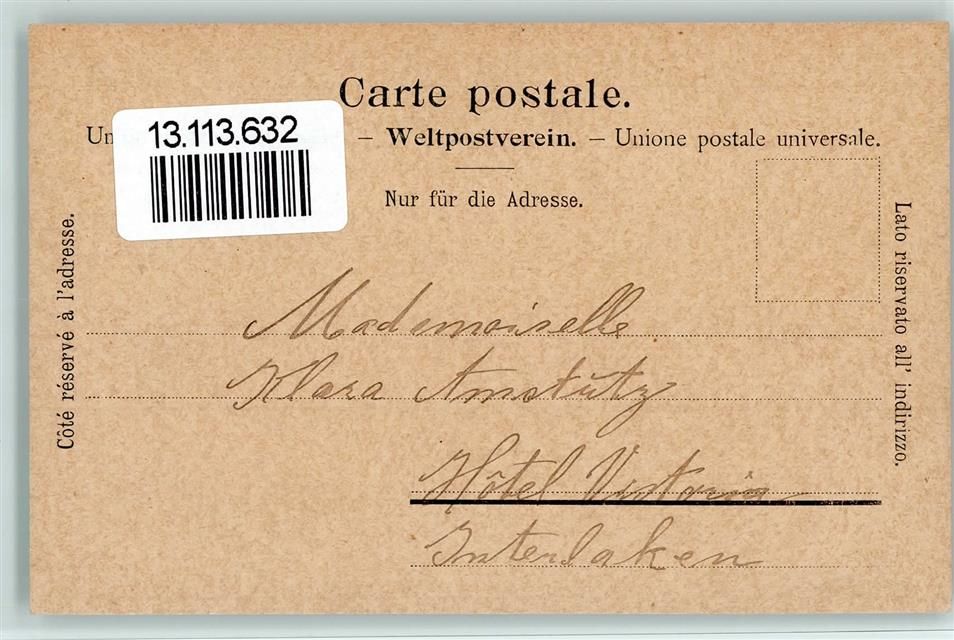 Carte postale.
Un
13.113.632
– Weltpostverein. – Unione postale universale.
Nur für die Adresse.
Côté réservé à l'adresse.
Lato riservato all' indirizzo.
Mademoiselle
Klara Amstutz
Hôtel Victoria
Interlaken